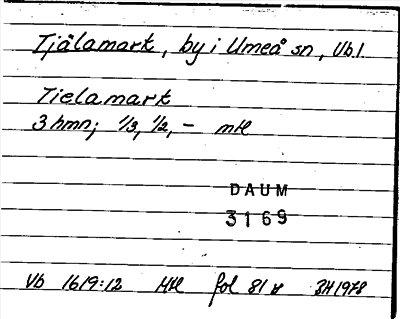 Tjälamark, by i Umeå sn, Vb l
Tielamark
3 hmn; 1/3, 1/2, - mtl
DAUM
3169
Vb 1619:12 Mtl fol 81 v BH 1978